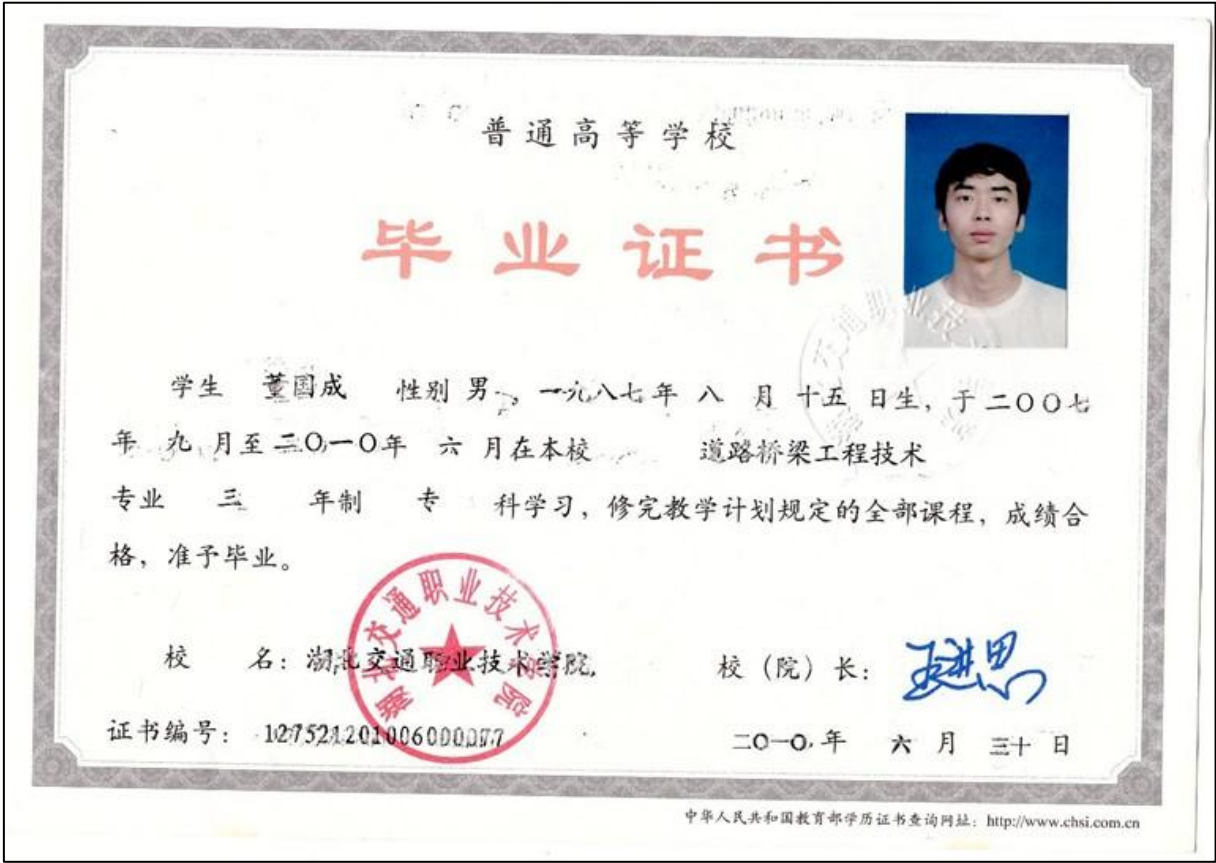 普通高等学校
毕业证书
学生 董国成 性别 男, 一九八七年 八 月 十五 日生, 于二〇〇七
年 九 月至二〇一〇年 六 月在本校 道路桥梁工程技术
专业 三 年制 专 科学习, 修完教学计划规定的全部课程, 成绩合
格, 准予毕业。
湖北交通职业技术学院
校 名: 湖北交通职业技术学院
校(院)长:
证书编号: 127521201006000077
二〇一〇年 六 月 三十 日
中华人民共和国教育部学历证书查询网址: http://www.chsi.com.cn